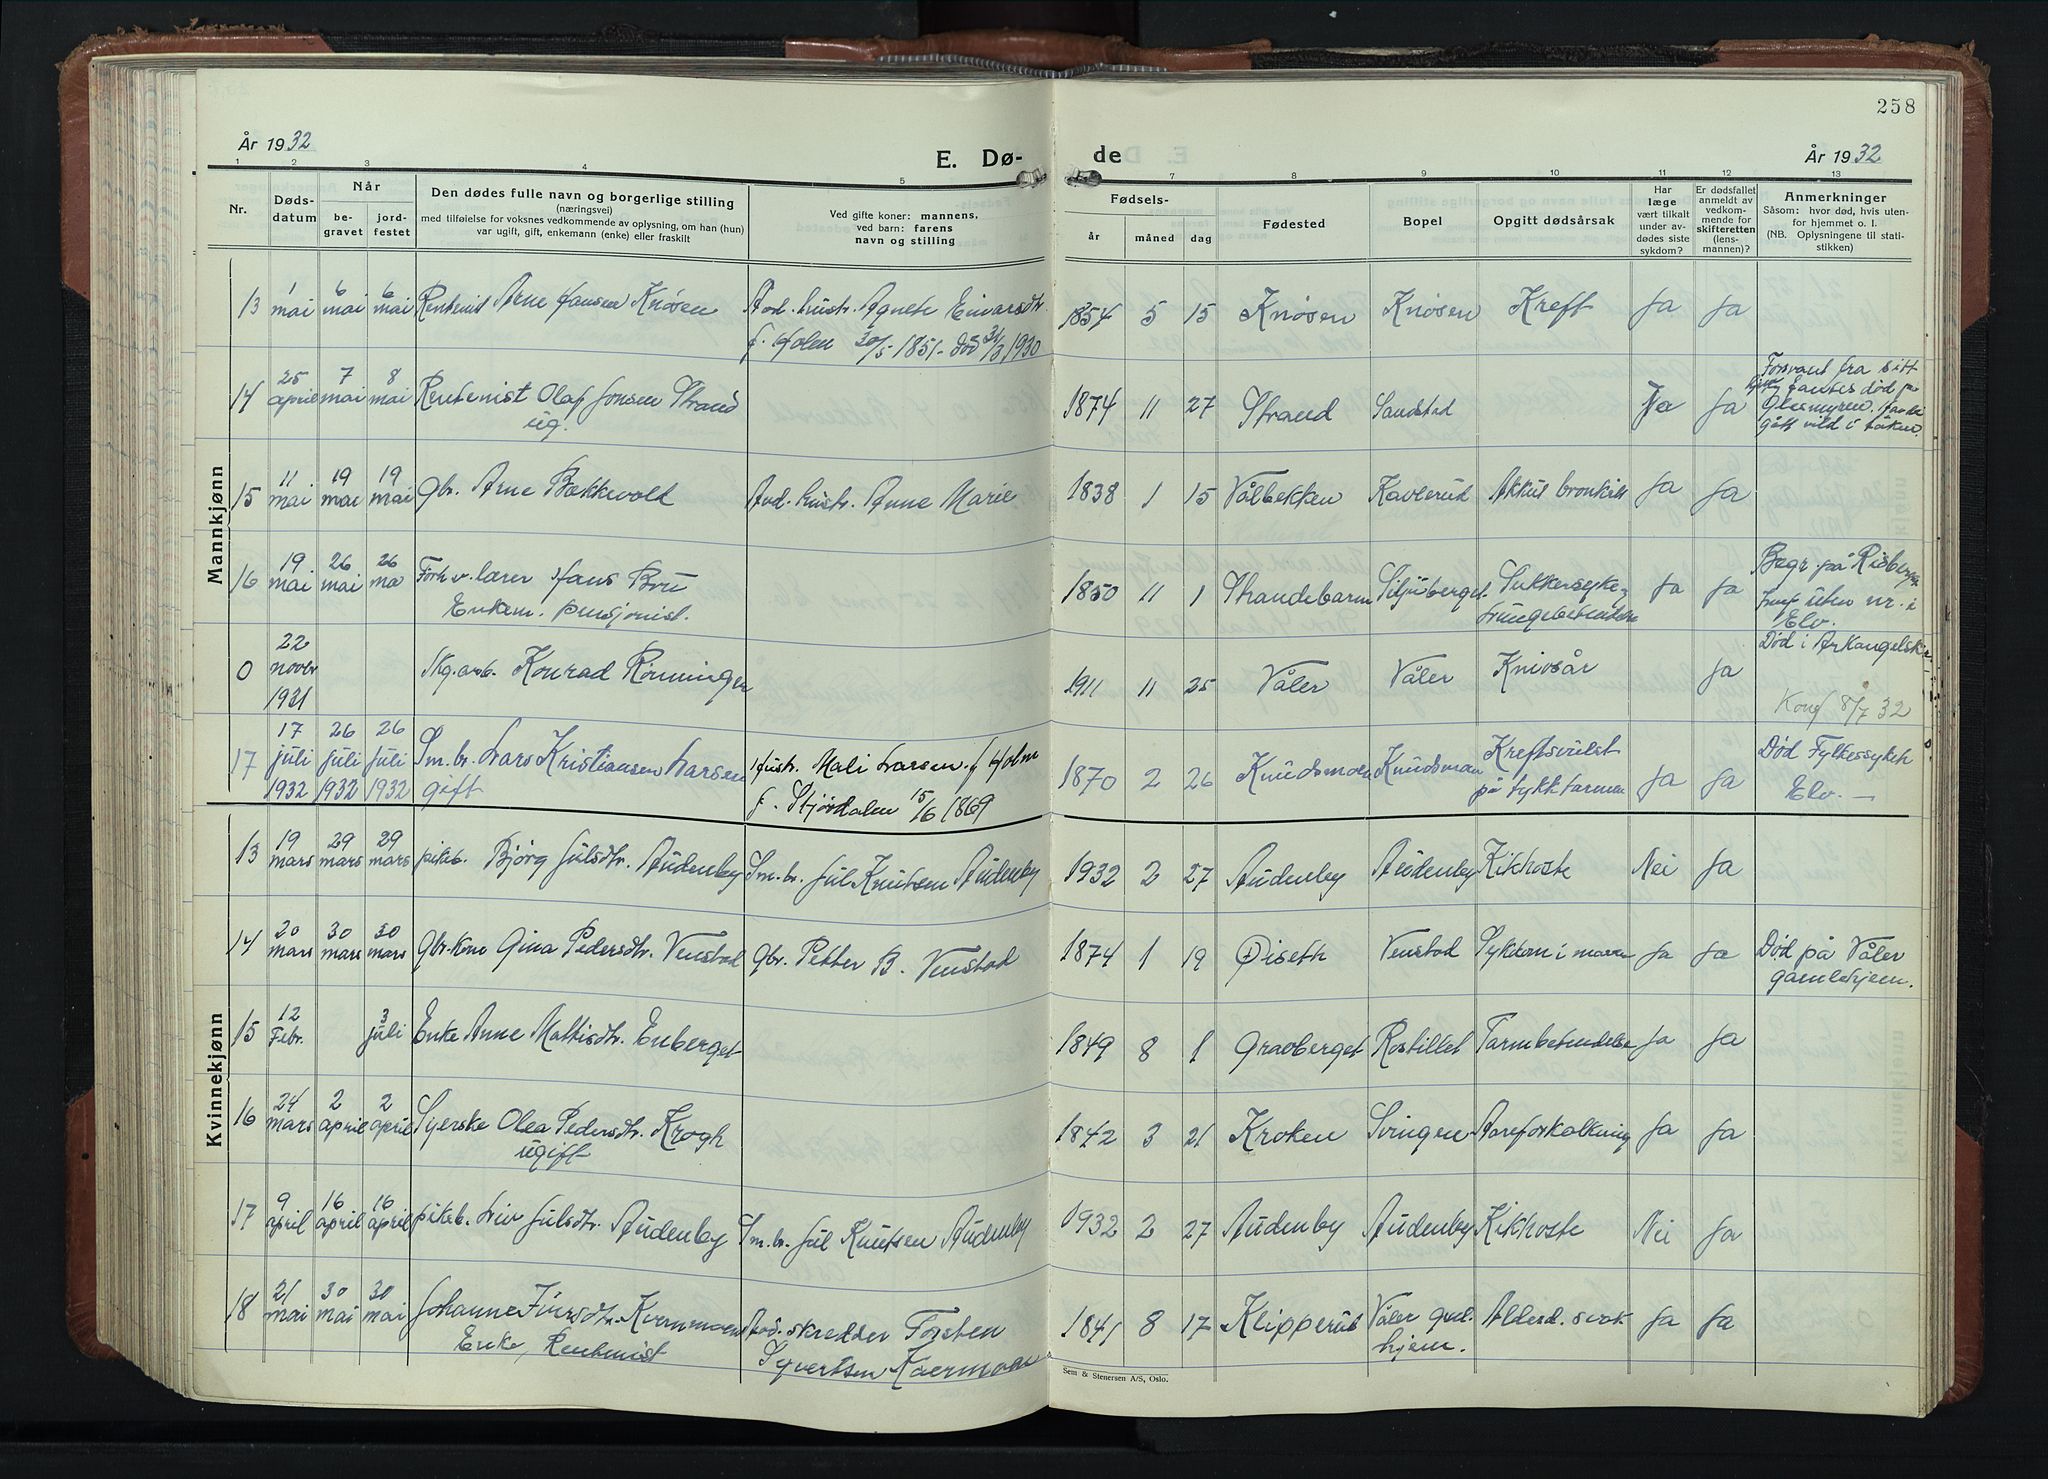 258
År 1932
E. Dø-
de
År 1932
1 2 3 4 5 7 8 9 10 11 12 13
Nr.
Døds-
datum
Når
be-
gravet
jord-
festet
Den dødes fulle navn og borgerlige stilling
(næringsvei)
med tilføielse for voksnes vedkommende av oplysning, om han (hun)
var ugift, gift, enkemann (enke) eller fraskilt
Ved gifte koner: mannens,
ved barn: farens
navn og stilling
Fødsels-
år
måned
dag
Fødested
Bopel
Opgitt dødsårsak
Har
læge
vært tilkalt
under av-
dødes siste
sykdom?
Er dødsfallet
anmeldt av
vedkom-
mende for
skifteretten
(lens-
mannen)?
Anmerkninger
Såsom: hvor død, hvis uten-
for hjemmet o. l.
(NB. Oplysningene til stati-
stikken)
Mannkjønn
13 1 mai 6 mai 6 mai Rentenist Arne Hansen Knøsen Avd. hustr. Agnete Einarsdtr. 1854 5 15 Knøsen Knøsen Kreft Ja Ja
f. Holen 30/5-1851- død 31/3 1930
14 25 april 7 mai 8 mai Rentenist Olaf Jonsen Strand 1874 11 27 Strand Sandstad Ja Forsvant fra sitt
ug. hjem, fantes død på
gått vild i tåken.
15 11 mai 19 mai 19 mai Gbr. Arne Bækkevold Avd. hustr. Anne Marie 1838 1 15 Vålbekken Kavlerud Akkut bronkitt Ja Ja
16 19 mai 26 mai 26 ma Forh.v. lærer Hans Bru 1850 11 1 Strandebarm Siljuberget Sukkersyke- Ja Ja Begr. på Risberget
Enkem. pensjonist. Lungebetendelse uten nr. i
Elv.
0 22 novbr 1931 Skg.arb. Konrad Rønningen 1911 11 25 Våler Våler Knivsår Ja Død i Arkangelsk
8/7 32
17 17 juli 1932 26 juli 1932 26 juli 1932 Sm.br. Lars Kristiansen Larsen Hustr. Mali Larsen f. Holm 1870 2 26 Knudsmoen Knudsmoen Kreftsvulst Ja Ja Død Fylkessykeh
gift f. Stjørdalen 15/6 1869 på tykktarmen Elv. —
Kvinnekjønn
13 19 mars 29 mars 29 mars pikeb. Bjørg Julsdtr. Audenby Sm.br. Jul Knutsen Audenby 1932 2 27 Audenby Audenby Kikhoste Nei Ja
14 20 mars 30 mars 30 mars Gbr.kone Gina Pedersdtr. Venstad Gbr. Petter B. Venstad 1874 1 19 Øiseth Venstad Sykdom i maven Ja Ja Død på Våler
gamlehjem.
15 12 Febr. 3 juli Enke Anne Mattisdtr. Enberget 1849 8 1 Gravberget Rostillet Tarmbetendelse Ja Ja
16 24 mars 2 april 2 april Syerske Olea Pedersdtr. Krogh 1842 3 21 Kroken Svingen Aareforkalkning Ja Ja
ugift
17 9 april 16 april 16 april pikeb. Liv Julsdtr. Audenby Sm.br. Jul Knutsen Audenby 1932 2 27 Audenby Audenby Kikhoste Nei Ja
18 21 mai 30 mai 30 mai Johanne Iversdtr. Kvernmoen Avd. skredder Torsten 1841 8 17 Klipperud Våler gml. Alderd. svak Ja Ja
Enke, Rentenist Syvertsen Kvernmoen hjem.
Sem & Stenersen A/S, Oslo.